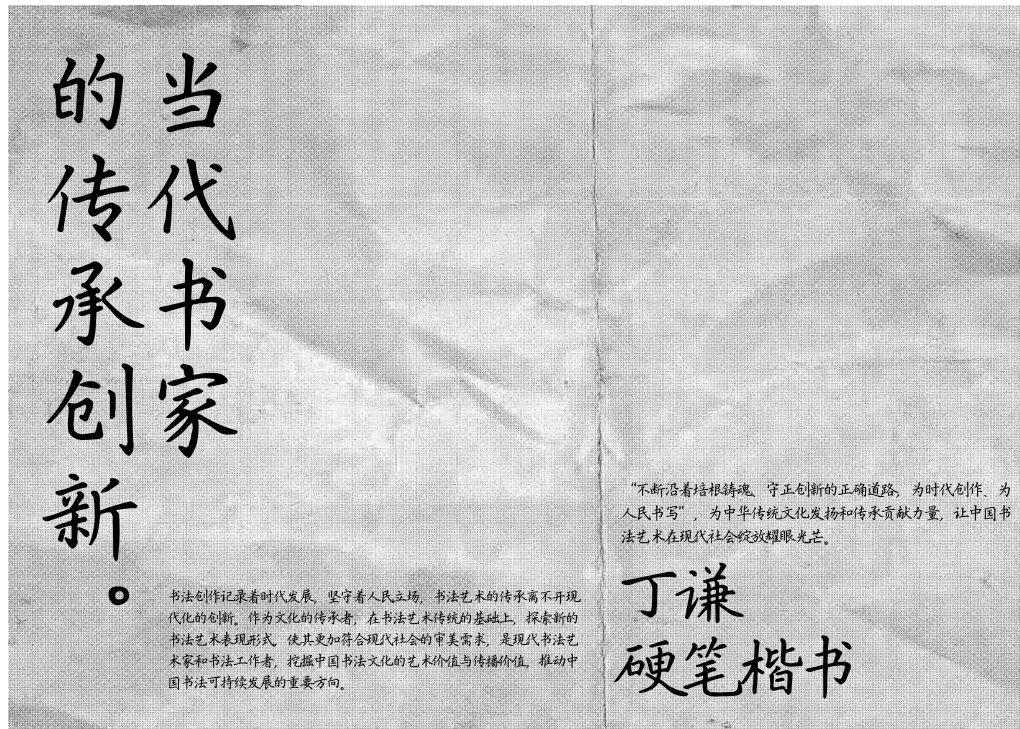 当代书家
的传承创新。
书法创作记录着时代发展，坚守着人民立场，书法艺术的传承离不开现
代化的创新。作为文化的传承者，在书法艺术传统的基础上，探索新的
书法艺术表现形式，使其更加符合现代社会的审美需求，是现代书法艺
术家和书法工作者，挖掘中国书法文化的艺术价值与传播价值，推动中
国书法可持续发展的重要方向。
“不断沿着培根铸魂、守正创新的正确道路，为时代创作、为
人民书写”，为中华传统文化发扬和传承贡献力量，让中国书
法艺术在现代社会绽放耀眼光芒。
丁谦
硬笔楷书